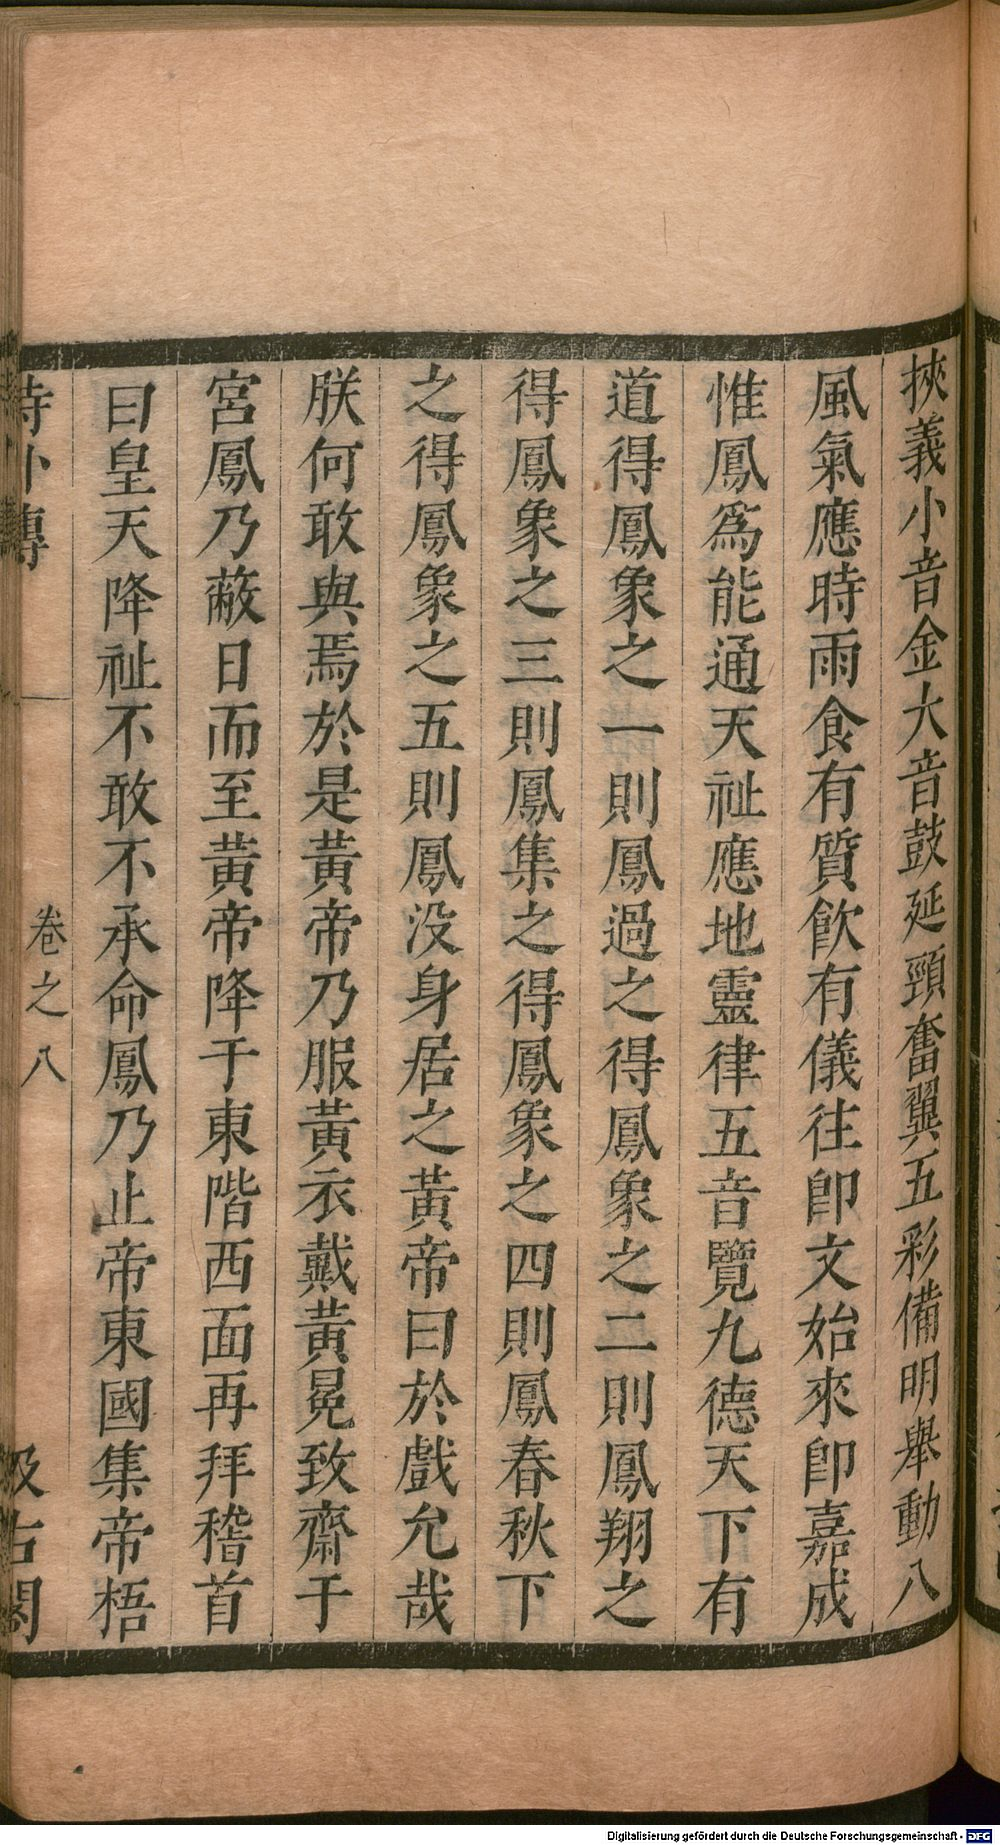 挾義小音金大音鼓延頸奮翼五彩備明舉動八
風氣應時雨食有質飲有儀往卽文始來卽嘉成
惟鳳爲能通天祉應地靈律五音覽九德天下有
道得鳳象之一則鳳過之得鳳象之二則鳳翔之
得鳳象之三則鳳集之得鳳象之四則鳳春秋下
之得鳳象之五則鳳没身居之黃帝曰於戲允哉
朕何敢與焉於是黃帝乃服黃衣戴黃冕致齋于
宮鳳乃蔽日而至黃帝降于東階西面再拜稽首
曰皇天降祉不敢不承命鳳乃止帝東國集帝梧
詩外傳 卷之八 汲古閣
Digitalisierung gefördert durch die Deutsche Forschungsgemeinschaft - DFG